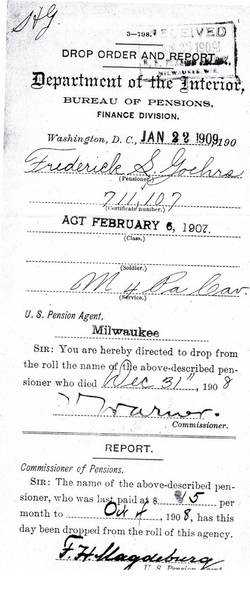 HG
3-198.
RECEIVED
22 1909
MILWAUKEE WIS.
DROP ORDER AND REPORT
Department of the Interior,
BUREAU OF PENSIONS,
FINANCE DIVISION.
Washington, D. C., JAN 22 1909 190
Frederick S. Gochra
(Pensioner.)
711,107
(Certificate number.)
ACT FEBRUARY 6, 1907.
(Class.)
(Soldier.)
M 4 Pa Cav.
(Service.)
U. S. Pension Agent,
Milwaukee
SIR: You are hereby directed to drop from
the roll the name of the above-described pen-
sioner who died Dec 31", 1908
Warner.
Commissioner.
REPORT.
Commissioner of Pensions.
SIR: The name of the above-described pen-
sioner, who was last paid at $ 15 per
month to Oct 4, 1908, has this
day been dropped from the roll of this agency.
F. H. Magdeburg
U. S. Pension Agent